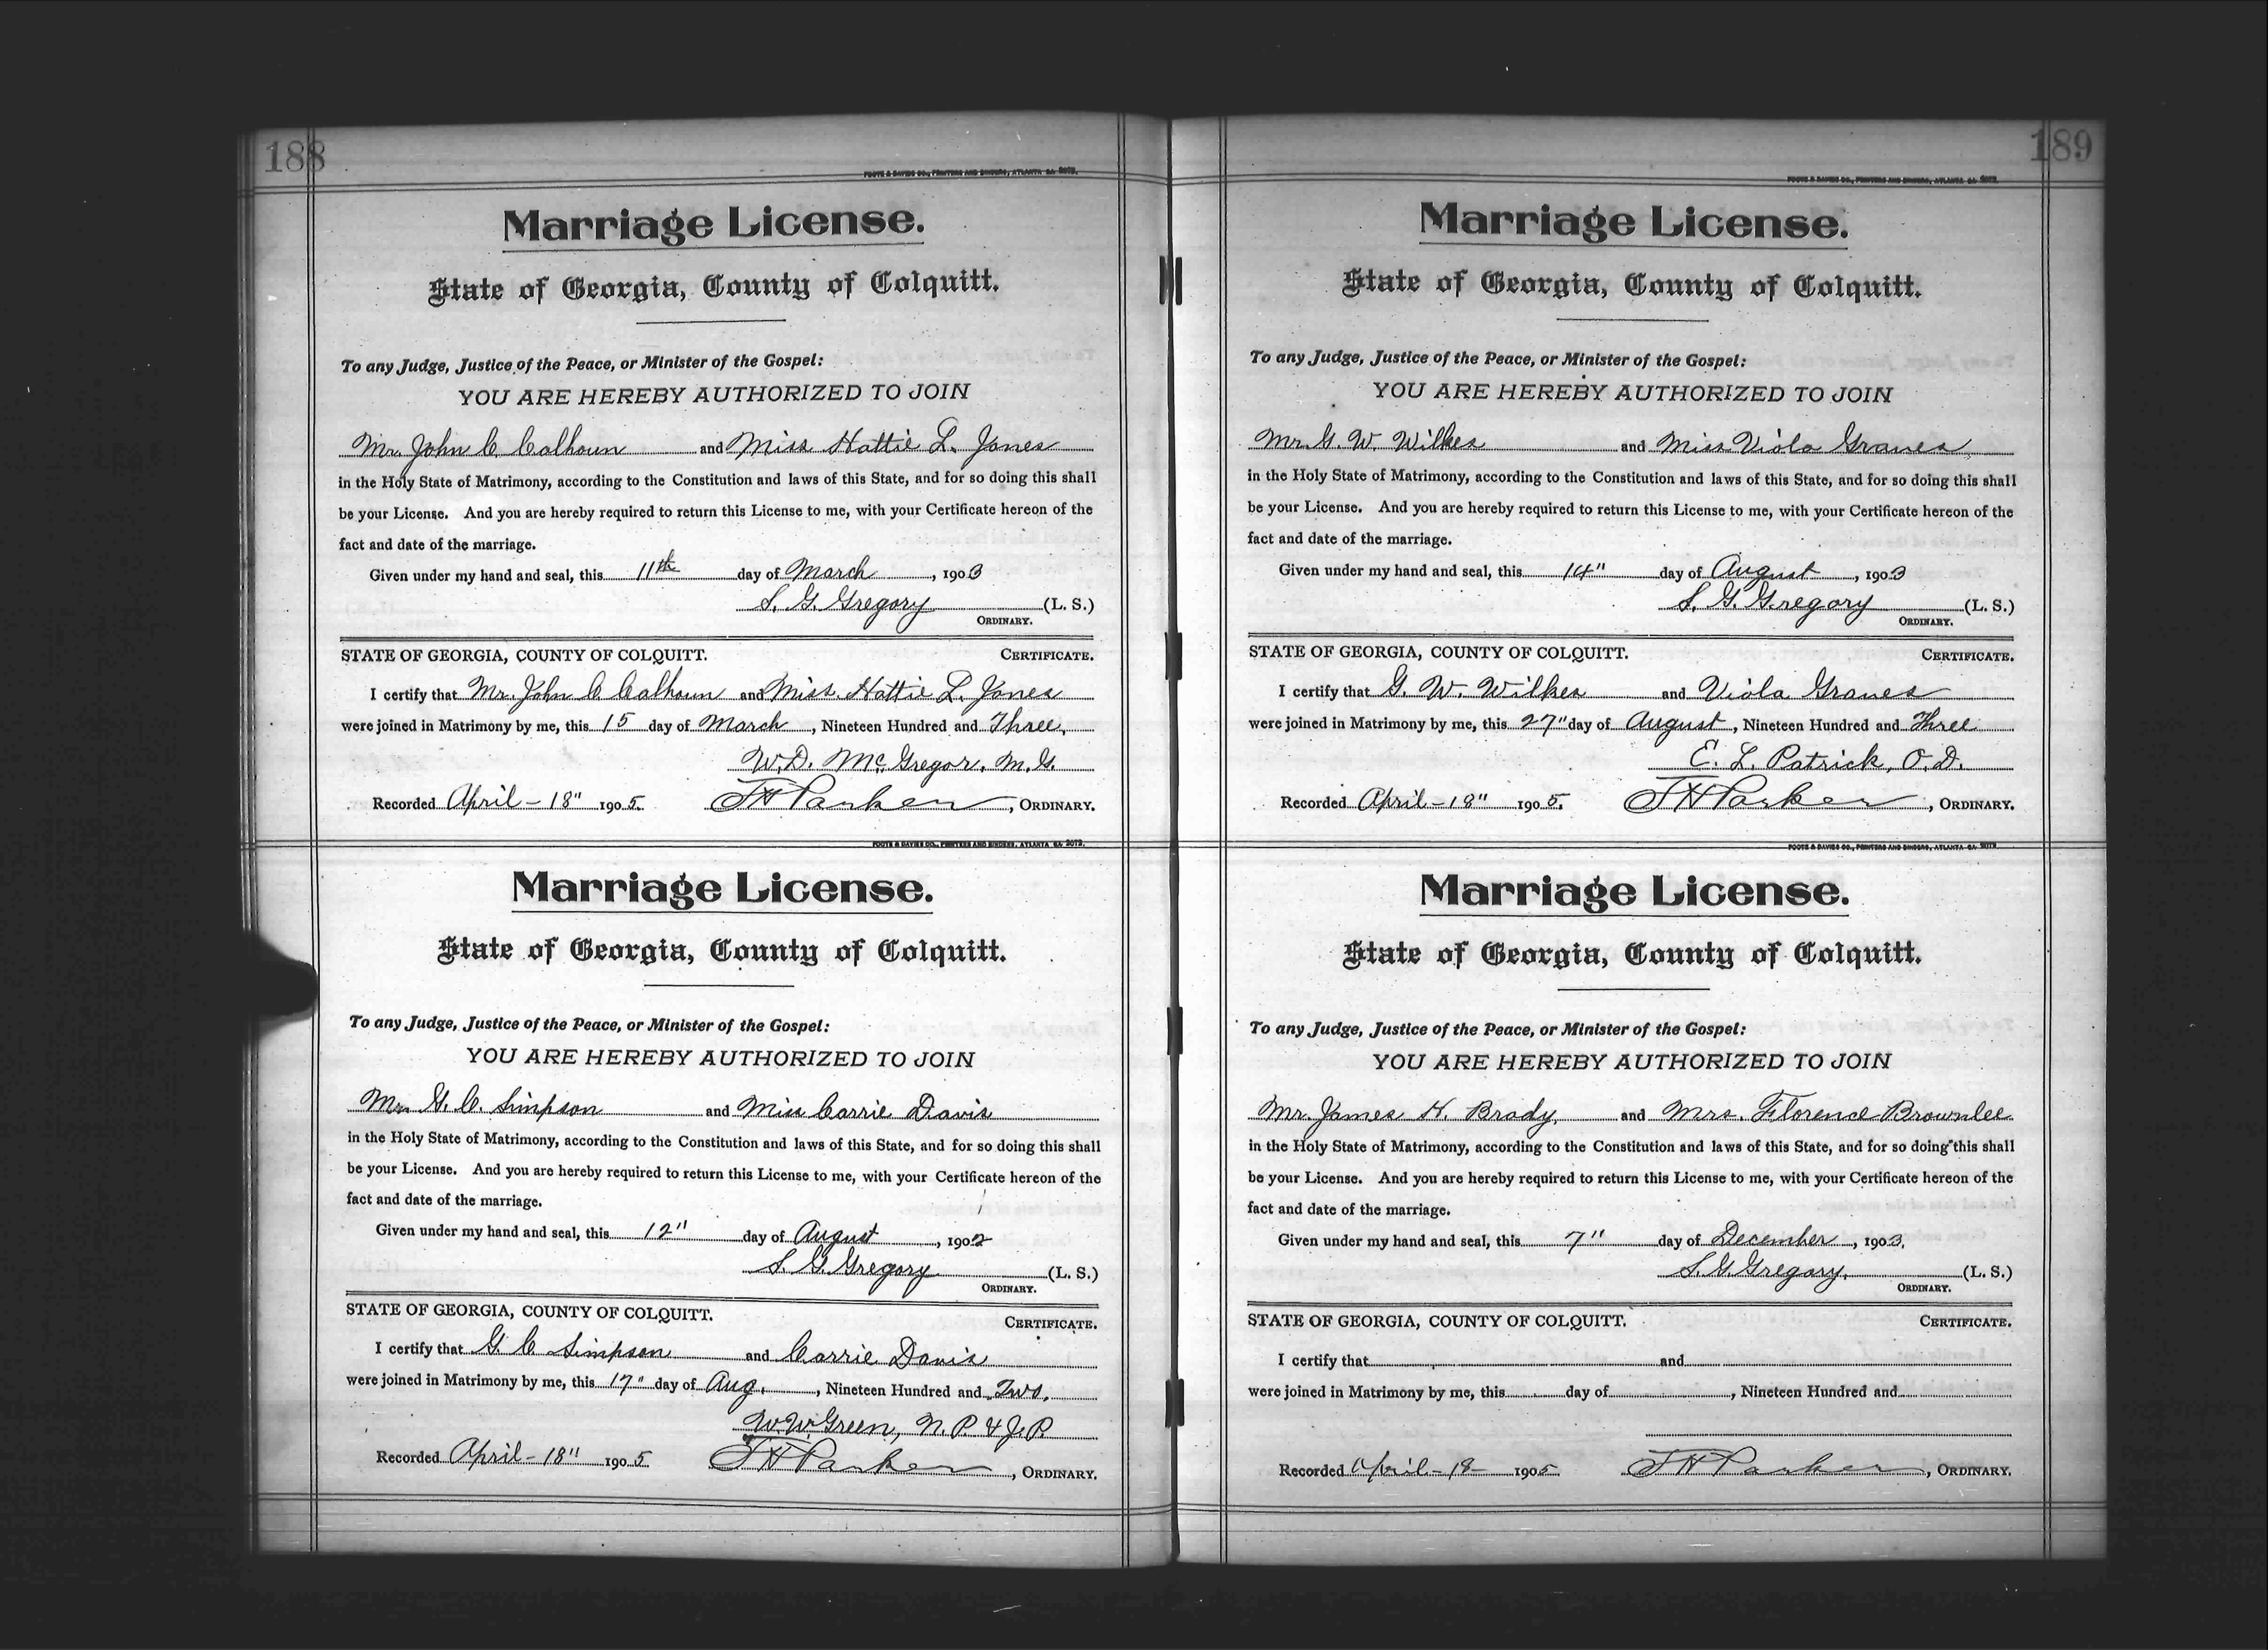 188
FOOTE & DAVIES CO., PRINTERS AND BINDERS, ATLANTA GA. 2072.
Marriage License.
State of Georgia, County of Colquitt.
To any Judge, Justice of the Peace, or Minister of the Gospel:
YOU ARE HEREBY AUTHORIZED TO JOIN
Mr. John C Calhoun and Miss Hattie L. Jones
in the Holy State of Matrimony, according to the Constitution and laws of this State, and for so doing this shall
be your License. And you are hereby required to return this License to me, with your Certificate hereon of the
fact and date of the marriage.
Given under my hand and seal, this 11th day of March, 1903
S. G. Gregory (L. S.)
ORDINARY.
STATE OF GEORGIA, COUNTY OF COLQUITT. CERTIFICATE.
I certify that Mr. John C Calhoun and Miss. Hattie L. Jones
were joined in Matrimony by me, this 15 day of March, Nineteen Hundred and Three,
W. D. McGregor, M. G.
Recorded April - 18" 1905. J H Parker, ORDINARY.
FOOTE & DAVIES CO., PRINTERS AND BINDERS, ATLANTA GA. 2072.
Marriage License.
State of Georgia, County of Colquitt.
To any Judge, Justice of the Peace, or Minister of the Gospel:
YOU ARE HEREBY AUTHORIZED TO JOIN
Mr. G. C. Simpson and Miss Carrie Davis
in the Holy State of Matrimony, according to the Constitution and laws of this State, and for so doing this shall
be your License. And you are hereby required to return this License to me, with your Certificate hereon of the
fact and date of the marriage.
Given under my hand and seal, this 12" day of August, 1902
S. G. Gregory (L. S.)
ORDINARY.
STATE OF GEORGIA, COUNTY OF COLQUITT. CERTIFICATE.
I certify that G. C Simpson and Carrie Davis
were joined in Matrimony by me, this 17" day of Aug., Nineteen Hundred and Two.
W. W. Green, N. P. & J. P.
Recorded April - 18" 1905. J H Parker, ORDINARY.
189
FOOTE & DAVIES CO., PRINTERS AND BINDERS, ATLANTA GA. 2072.
Marriage License.
State of Georgia, County of Colquitt.
To any Judge, Justice of the Peace, or Minister of the Gospel:
YOU ARE HEREBY AUTHORIZED TO JOIN
Mr. G. W. Wilkes and Miss Viola Graves
in the Holy State of Matrimony, according to the Constitution and laws of this State, and for so doing this shall
be your License. And you are hereby required to return this License to me, with your Certificate hereon of the
fact and date of the marriage.
Given under my hand and seal, this 14" day of August, 1903
S. G. Gregory (L. S.)
ORDINARY.
STATE OF GEORGIA, COUNTY OF COLQUITT. CERTIFICATE.
I certify that G. W. Wilkes and Viola Graves
were joined in Matrimony by me, this 27" day of August, Nineteen Hundred and Three
E. L. Patrick, O. D.
Recorded April - 18" 1905. J H Parker, ORDINARY.
FOOTE & DAVIES CO., PRINTERS AND BINDERS, ATLANTA GA. 2072
Marriage License.
State of Georgia, County of Colquitt.
To any Judge, Justice of the Peace, or Minister of the Gospel:
YOU ARE HEREBY AUTHORIZED TO JOIN
Mr. James H. Brady, and Mrs. Florence Brownlee
in the Holy State of Matrimony, according to the Constitution and laws of this State, and for so doing this shall
be your License. And you are hereby required to return this License to me, with your Certificate hereon of the
fact and date of the marriage.
Given under my hand and seal, this 7" day of December, 1903.
S. G. Gregory. (L. S.)
ORDINARY.
STATE OF GEORGIA, COUNTY OF COLQUITT. CERTIFICATE.
I certify that and
were joined in Matrimony by me, this day of , Nineteen Hundred and
Recorded April - 18 - 1905 J H Parker, ORDINARY.